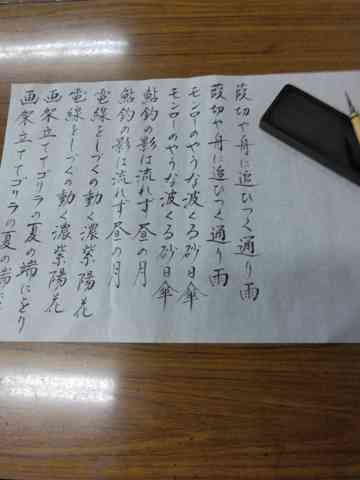 葭切や舟に追ひつく通り雨
葭切や舟に追ひつく通り雨
モンローのやうな波くる砂日傘
モンローのやうな波くる砂日傘
鮎釣の影は流れず昼の月
鮎釣の影は流れず昼の月
電線をしづくの動く濃紫陽花
電線をしづくの動く濃紫陽花
画架立ててゴリラの夏の端にをり
画架立ててゴリラの夏の端に